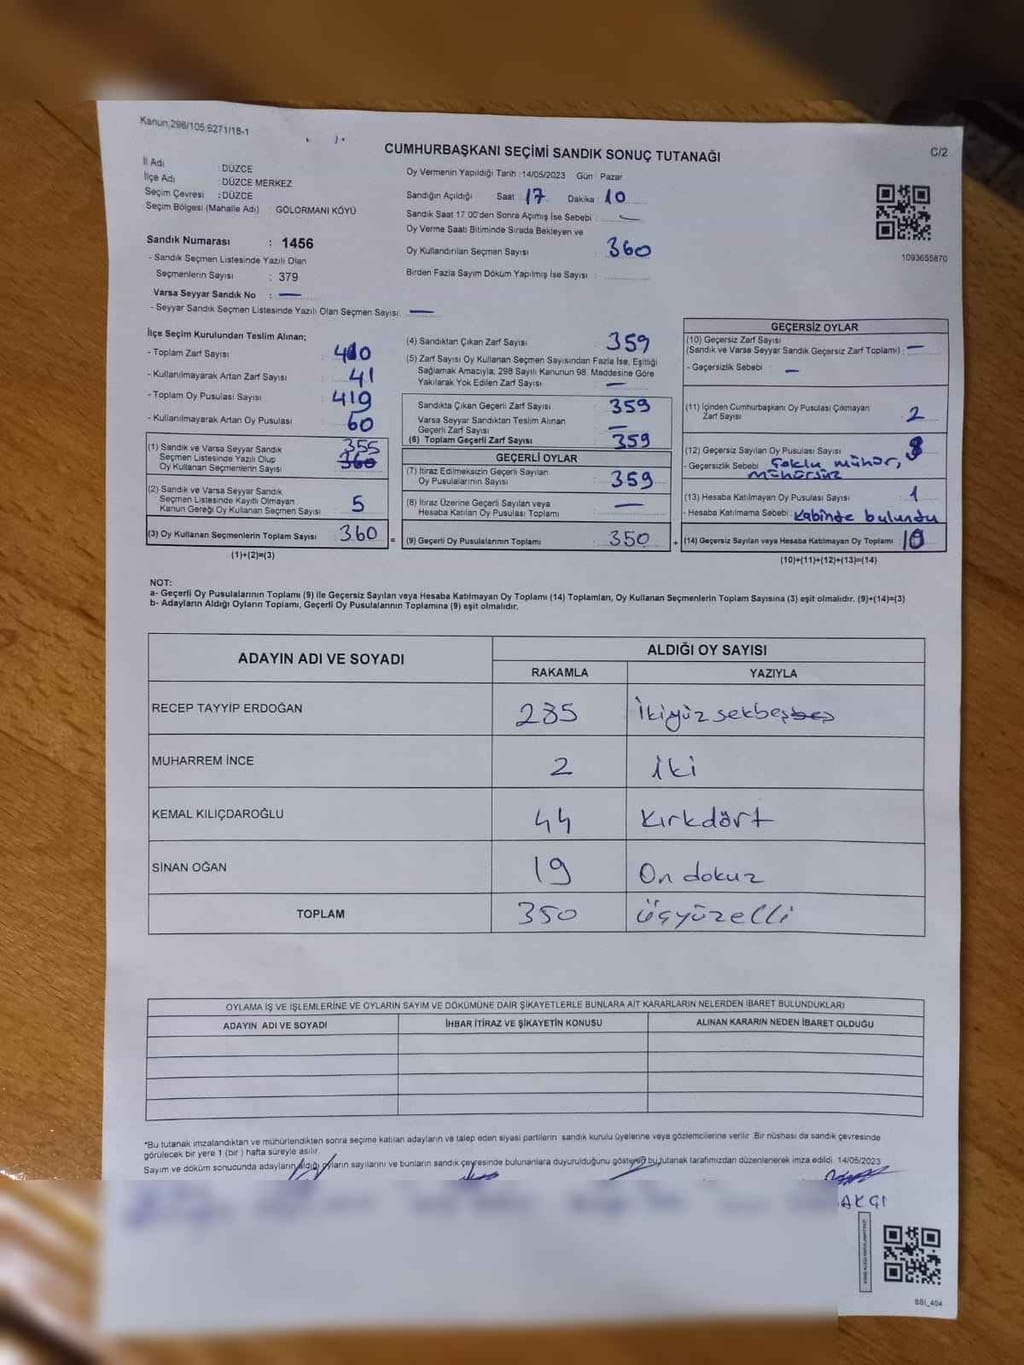 Kanun 298/105.6271/18-1
CUMHURBAŞKANI SEÇİMİ SANDIK SONUÇ TUTANAĞI
C/2
İl Adı : DÜZCE
İlçe Adı : DÜZCE MERKEZ
Seçim Çevresi : DÜZCE
Seçim Bölgesi (Mahalle Adı) : GÖLORMANI KÖYÜ
Sandık Numarası : 1456
- Sandık Seçmen Listesinde Yazılı Olan
Seçmenlerin Sayısı : 379
Varsa Seyyar Sandık No : —
- Seyyar Sandık Seçmen Listesinde Yazılı Olan Seçmen Sayısı: —
Oy Vermenin Yapıldığı Tarih : 14/05/2023 Gün : Pazar
Sandığın Açıldığı Saat : 17 Dakika : 10
Sandık Saat 17.00'den Sonra Açılmış İse Sebebi : —
Oy Verme Saati Bitiminde Sırada Bekleyen ve
Oy Kullandırılan Seçmen Sayısı : 360
Birden Fazla Sayım Döküm Yapılmış İse Sayısı :
1093655870
İlçe Seçim Kurulundan Teslim Alınan;
- Toplam Zarf Sayısı : 400
- Kullanılmayarak Artan Zarf Sayısı : 41
- Toplam Oy Pusulası Sayısı : 419
- Kullanılmayarak Artan Oy Pusulası : 60
(1) Sandık ve Varsa Seyyar Sandık
Seçmen Listesinde Yazılı Olup
Oy Kullanan Seçmenlerin Sayısı 355 360
(2) Sandık ve Varsa Seyyar Sandık
Seçmen Listesinde Kayıtlı Olmayan
Kanun Gereği Oy Kullanan Seçmen Sayısı : 5
(3) Oy Kullanan Seçmenlerin Toplam Sayısı 360
(1)+(2)=(3)
(4) Sandıktan Çıkan Zarf Sayısı : 359
(5) Zarf Sayısı Oy Kullanan Seçmen Sayısından Fazla İse, Eşitliği
Sağlamak Amacıyla; 298 Sayılı Kanunun 98. Maddesine Göre
Yakılarak Yok Edilen Zarf Sayısı : —
Sandıkta Çıkan Geçerli Zarf Sayısı : 359
Varsa Seyyar Sandıktan Teslim Alınan
Geçerli Zarf Sayısı : —
(6) Toplam Geçerli Zarf Sayısı : 359
GEÇERLİ OYLAR
(7) İtiraz Edilmeksizin Geçerli Sayılan
Oy Pusulalarının Sayısı : 359
(8) İtiraz Üzerine Geçerli Sayılan veya
Hesaba Katılan Oy Pusulası Toplamı : —
= (9) Geçerli Oy Pusulalarının Toplamı : 350
GEÇERSİZ OYLAR
(10) Geçersiz Zarf Sayısı
(Sandık ve Varsa Seyyar Sandık Geçersiz Zarf Toplamı) : —
- Geçersizlik Sebebi : —
(11) İçinden Cumhurbaşkanı Oy Pusulası Çıkmayan
Zarf Sayısı : 2
(12) Geçersiz Sayılan Oy Pusulası Sayısı :
- Geçersizlik Sebebi : Çoklu mühür,
mühürsüz
(13) Hesaba Katılmayan Oy Pusulası Sayısı : 1
- Hesaba Katılmama Sebebi : Kabinde bulundu
+ (14) Geçersiz Sayılan veya Hesaba Katılmayan Oy Toplamı : 10
(10)+(11)+(12)+(13)=(14)
NOT:
a- Geçerli Oy Pusulalarının Toplamı (9) ile Geçersiz Sayılan veya Hesaba Katılmayan Oy Toplamı (14) Toplamları, Oy Kullanan Seçmenlerin Toplam Sayısına (3) eşit olmalıdır. (9)+(14)=(3)
b- Adayların Aldığı Oyların Toplamı, Geçerli Oy Pusulalarının Toplamına (9) eşit olmalıdır.
ADAYIN ADI VE SOYADI
ALDIĞI OY SAYISI
RAKAMLA YAZIYLA
RECEP TAYYİP ERDOĞAN 285 İkiyüz sekbeşbeş
MUHARREM İNCE 2 İki
KEMAL KILIÇDAROĞLU 44 Kırkdört
SİNAN OĞAN 19 On dokuz
TOPLAM 350 Üçyüzelli
OYLAMA İŞ VE İŞLEMLERİNE VE OYLARIN SAYIM VE DÖKÜMÜNE DAİR ŞİKAYETLERLE BUNLARA AİT KARARLARIN NELERDEN İBARET BULUNDUKLARI
ADAYIN ADI VE SOYADI İHBAR İTİRAZ VE ŞİKAYETİN KONUSU ALINAN KARARIN NEDEN İBARET OLDUĞU
*Bu tutanak imzalandıktan ve mühürlendikten sonra seçime katılan adayların ve talep eden siyasi partilerin sandık kurulu üyelerine veya gözlemcilerine verilir. Bir nüshası da sandık çevresinde
görülecek bir yere 1 (bir) hafta süreyle asılır.
Sayım ve döküm sonucunda adayların aldığı oyların sayılarını ve bunların sandık çevresinde bulunanlara duyurulduğunu gösteren bu tutanak tarafımızdan düzenlenerek imza edildi. 14/05/2023
AKÇI
SSI_404